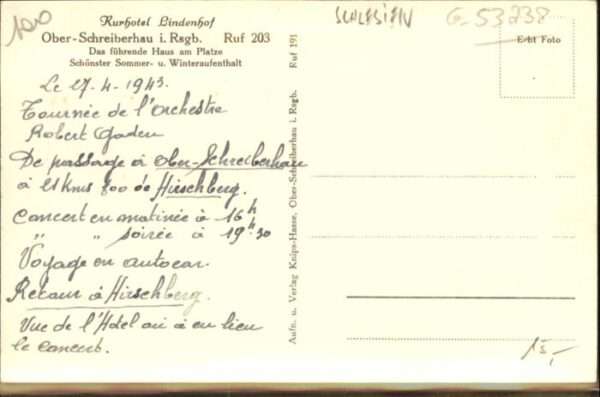 100
Kurhotel Lindenhof
Ober-Schreiberhau i. Rsgb. Ruf 203
Das führende Haus am Platze
Schönster Sommer- u. Winteraufenthalt
SCHLESIEN
G-53238
Echt Foto
Le 27-4-1943.
Tournée de l'Orchestre
Robert Gaden
De passage à Ober-Schreiberhau
à 21 Kms 800 de Hirschberg.
Concert en matinée à 16h
" " soirée à 19h30
Voyage en autocar.
Retour à Hirschberg.
Vue de l'Hotel où à eu lieu
le concert.
Aufn. u. Verlag Knips-Hasse, Ober-Schreiberhau i. Rsgb. Ruf 191
15,-